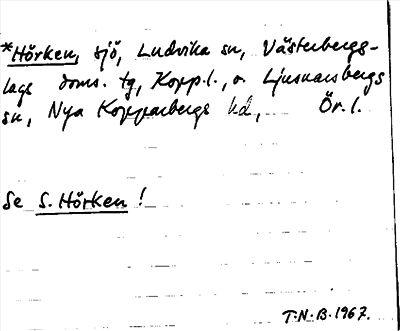 *Hörken, sjö, Ludvika sn, Västerbergs-
lags doms. tg, Kopp.l., o. Ljusnarsbergs
sn, Nya Kopparbergs hd, Ör.l.
Se S. Hörken!
T.N.B. 1967.